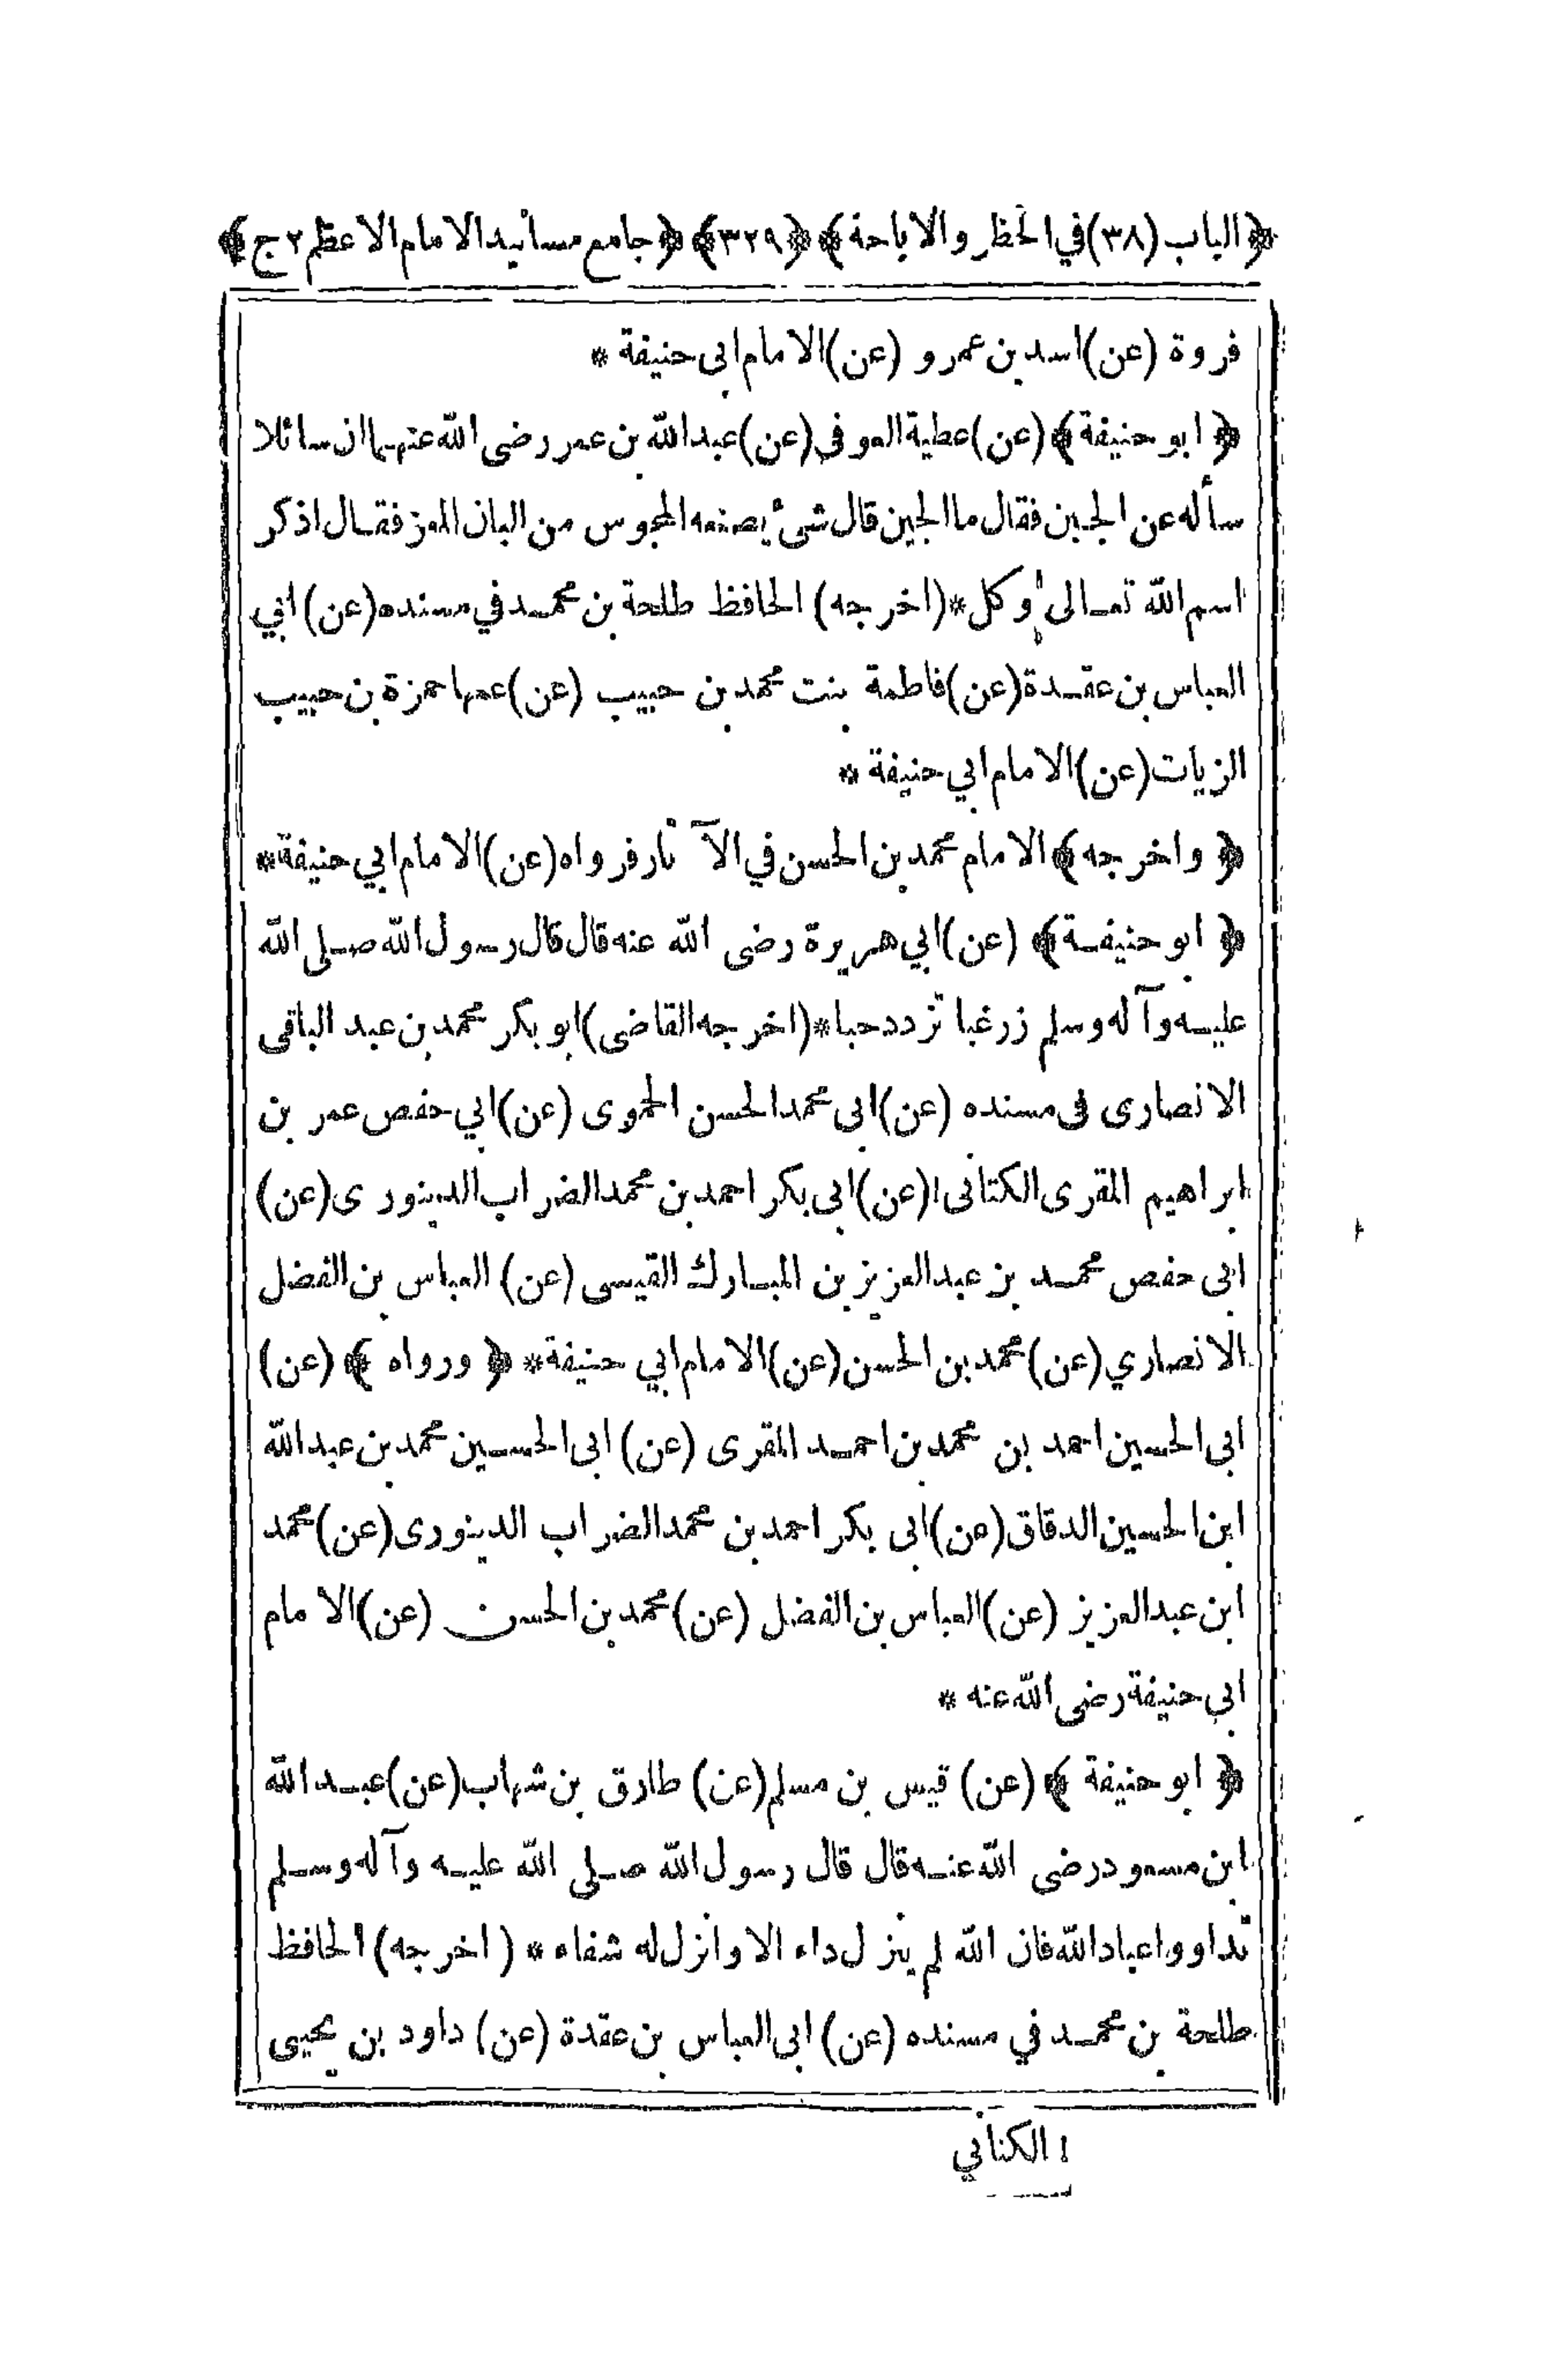 ﴿الباب (٣٨) في الحظر والاباحة﴾ ﴿٣٢٩﴾ ﴿جامع مسانيد الامام الاعظم ٢ ج﴾
فروة (عن) اسد بن عمرو (عن) الامام ابى حنيفة *
﴿ ابو حنيفة ﴾ (عن) عطية العوفى (عن) عبد الله بن عمر رضى الله عنهما ان سائلا
سأله عن الجبن فقال ما الجبن قال شىء يصنعه المجوس من البان المعز فقال اذكر
اسم الله تعالى وكل * (اخرجه) الحافظ طلحة بن محمد في مسنده (عن) ابي
العباس بن عقدة (عن) فاطمة بنت محمد بن حبيب (عن) عمها حمزة بن حبيب
الزيات (عن) الامام ابي حنيفة *
﴿ واخرجه ﴾ الامام محمد بن الحسن في الآثار فرواه (عن) الامام ابي حنيفة *
﴿ ابو حنيفة ﴾ (عن) ابي هريرة رضى الله عنه قال قال رسول الله صلى الله
عليه وآله وسلم زرغبا تزدد حبا * (اخرجه القاضى) ابو بكر محمد بن عبد الباقى
الانصارى فى مسنده (عن) ابى محمد الحسن الحموى (عن) ابي حفص عمر بن
ابراهيم المقرى الكتانى ١ (عن) ابى بكر احمد بن محمد الضراب الدينورى (عن)
ابى حفص محمد بن عبد العزيز بن المبارك القيسى (عن) العباس بن الفضل
الانصاري (عن) محمد بن الحسن (عن) الامام ابي حنيفة * ﴿ ورواه ﴾ (عن)
ابى الحسين احمد بن محمد بن احمد المقرى (عن) ابى الحسين محمد بن عبد الله
ابن الحسين الدقاق (عن) ابى بكر احمد بن محمد الضراب الدينورى (عن) محمد
ابن عبد العزيز (عن) العباس بن الفضل (عن) محمد بن الحسن (عن) الامام
ابي حنيفة رضى الله عنه *
﴿ ابو حنيفة ﴾ (عن) قيس بن مسلم (عن) طارق بن شهاب (عن) عبد الله
ابن مسعود رضى الله عنه قال قال رسول الله صلى الله عليه وآله وسلم
تداووا عباد الله فان الله لم ينزل داء الا وانزل له شفاء * (اخرجه) الحافظ
طلحة بن محمد في مسنده (عن) ابى العباس بن عقدة (عن) داود بن يحيى
١ الكناني